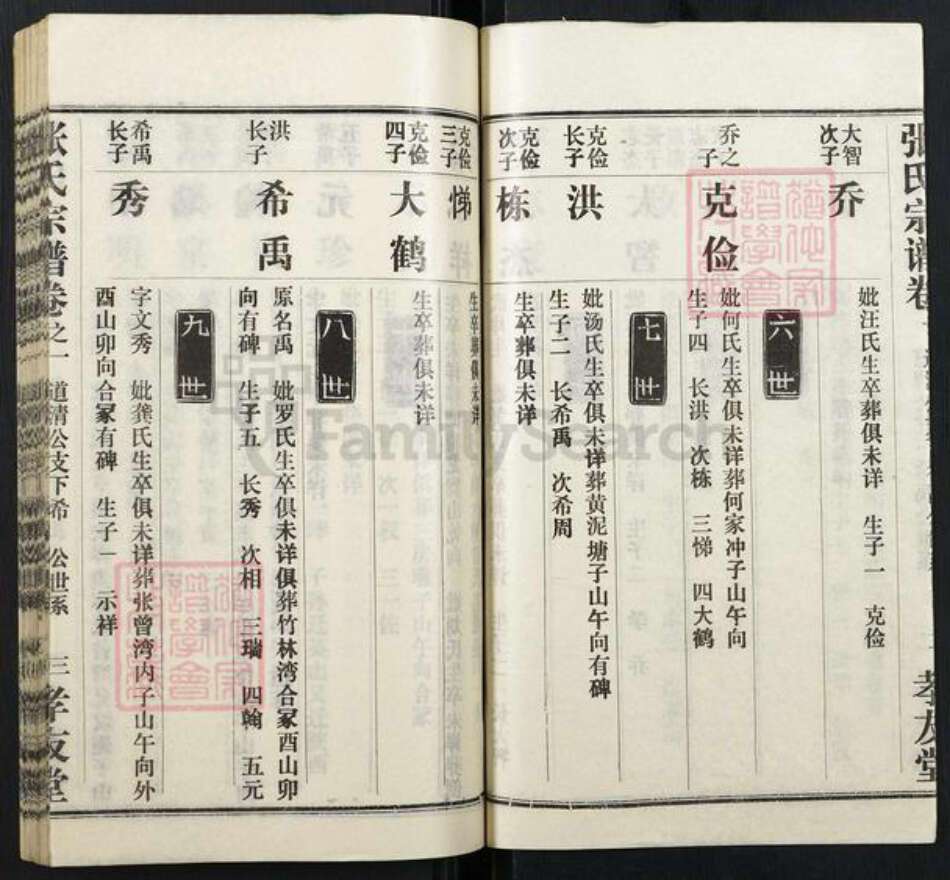 张氏宗谱卷
孝友堂
大智
次子
乔
妣汪氏生卒葬俱未详 生子一 克俭
六世
乔之
子
克俭
妣何氏生卒俱未详葬何家冲子山午向
生子四 长洪 次栋 三悌 四大鹤
七世
克俭
长子
洪
妣汤氏生卒俱未详葬黄泥塘子山午向有碑
生子二 长希禹 次希周
克俭
次子
栋
生卒葬俱未详
克俭
三子
悌
生卒葬俱未详
克俭
四子
大鹤
生卒葬俱未详
八世
洪
长子
希禹
原名禹 妣罗氏生卒俱未详俱葬竹林湾合冢酉山卯
向有碑 生子五 长秀 次相 三瑞 四翰 五元
九世
希禹
长子
秀
字文秀 妣龚氏生卒俱未详葬张曾湾内子山午向外
酉山卯向合冢有碑 生子一 示祥
张氏宗谱卷之一 道清公支下希 公世系 三 孝友堂
FamilySearch